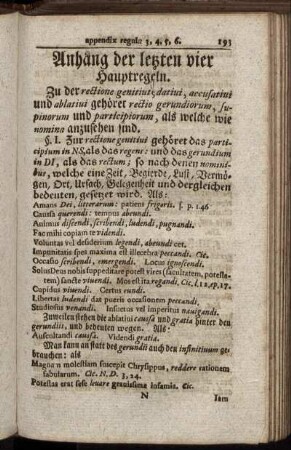 appendix regulæ 3, 4, 5, 6. 193
Anhang der letzten vier
Hauptregeln.
Zu der rectione genitivi, dativi, accusativi
und ablativi gehöret rectio gerundiorum, su-
pinorum und participiorum, als welche wie
nomina anzusehen sind.
§. I. Zur rectione genitivi gehöret das parti-
cipium in NS, als das regens: und das gerundium
in DI, als das rectum; so nach denen nomini-
bus, welche eine Zeit, Begierde, Lust, Vermö-
gen, Ort, Ursach, Gelegenheit und dergleichen
bedeuten, gesetzt wird. Als:
Amans Dei, litterarum: patiens frigoris. s. p. 146
Causa querendi: tempus abeundi.
Animus discendi, scribendi, ludendi, pugnandi.
Fac mihi copiam te videndi.
Voluntas vel desiderium legendi, abeundi cet.
Impunitatis spes maxima est illecebra peccandi. Cic.
Occasio scribendi, emergendi. Locus ignoscendi.
Solus Deus nobis suppeditare potest vires (facultatem, potesta-
tem) sancte vivendi. Mos est ita rogandi. Cic. l. 12. ep. 17.
Cupidus vivendi. Certus eundi.
Libertas ludendi dat pueris occasionem peccandi.
Studiosus venandi. Insuetus vel imperitus navigandi.
Zuweilen stehen die ablativi caussa und gratia hinter den
gerundiis, und bedeuten wegen. Als:
Auscultandi caussa. Videndi gratia.
Man kann an statt des gerundii auch den infinitivum ge-
brauchen: als
Magna molestiam suscepit Chrysippus, reddere rationem
fabularum. Cic. N. D. 3, 24.
Potestas erat sese levare gravissima infamia. Cic.
N Item